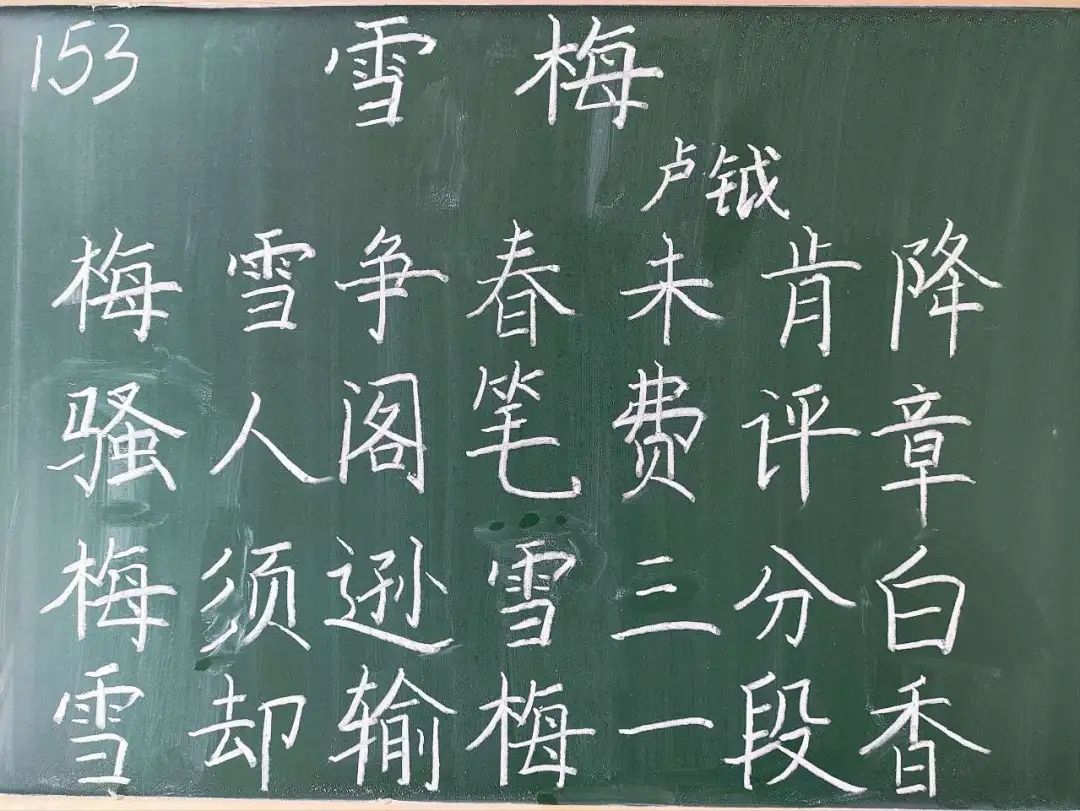 153 雪梅
卢钺
梅雪争春未肯降
骚人阁笔费评章
梅须逊雪三分白
雪却输梅一段香